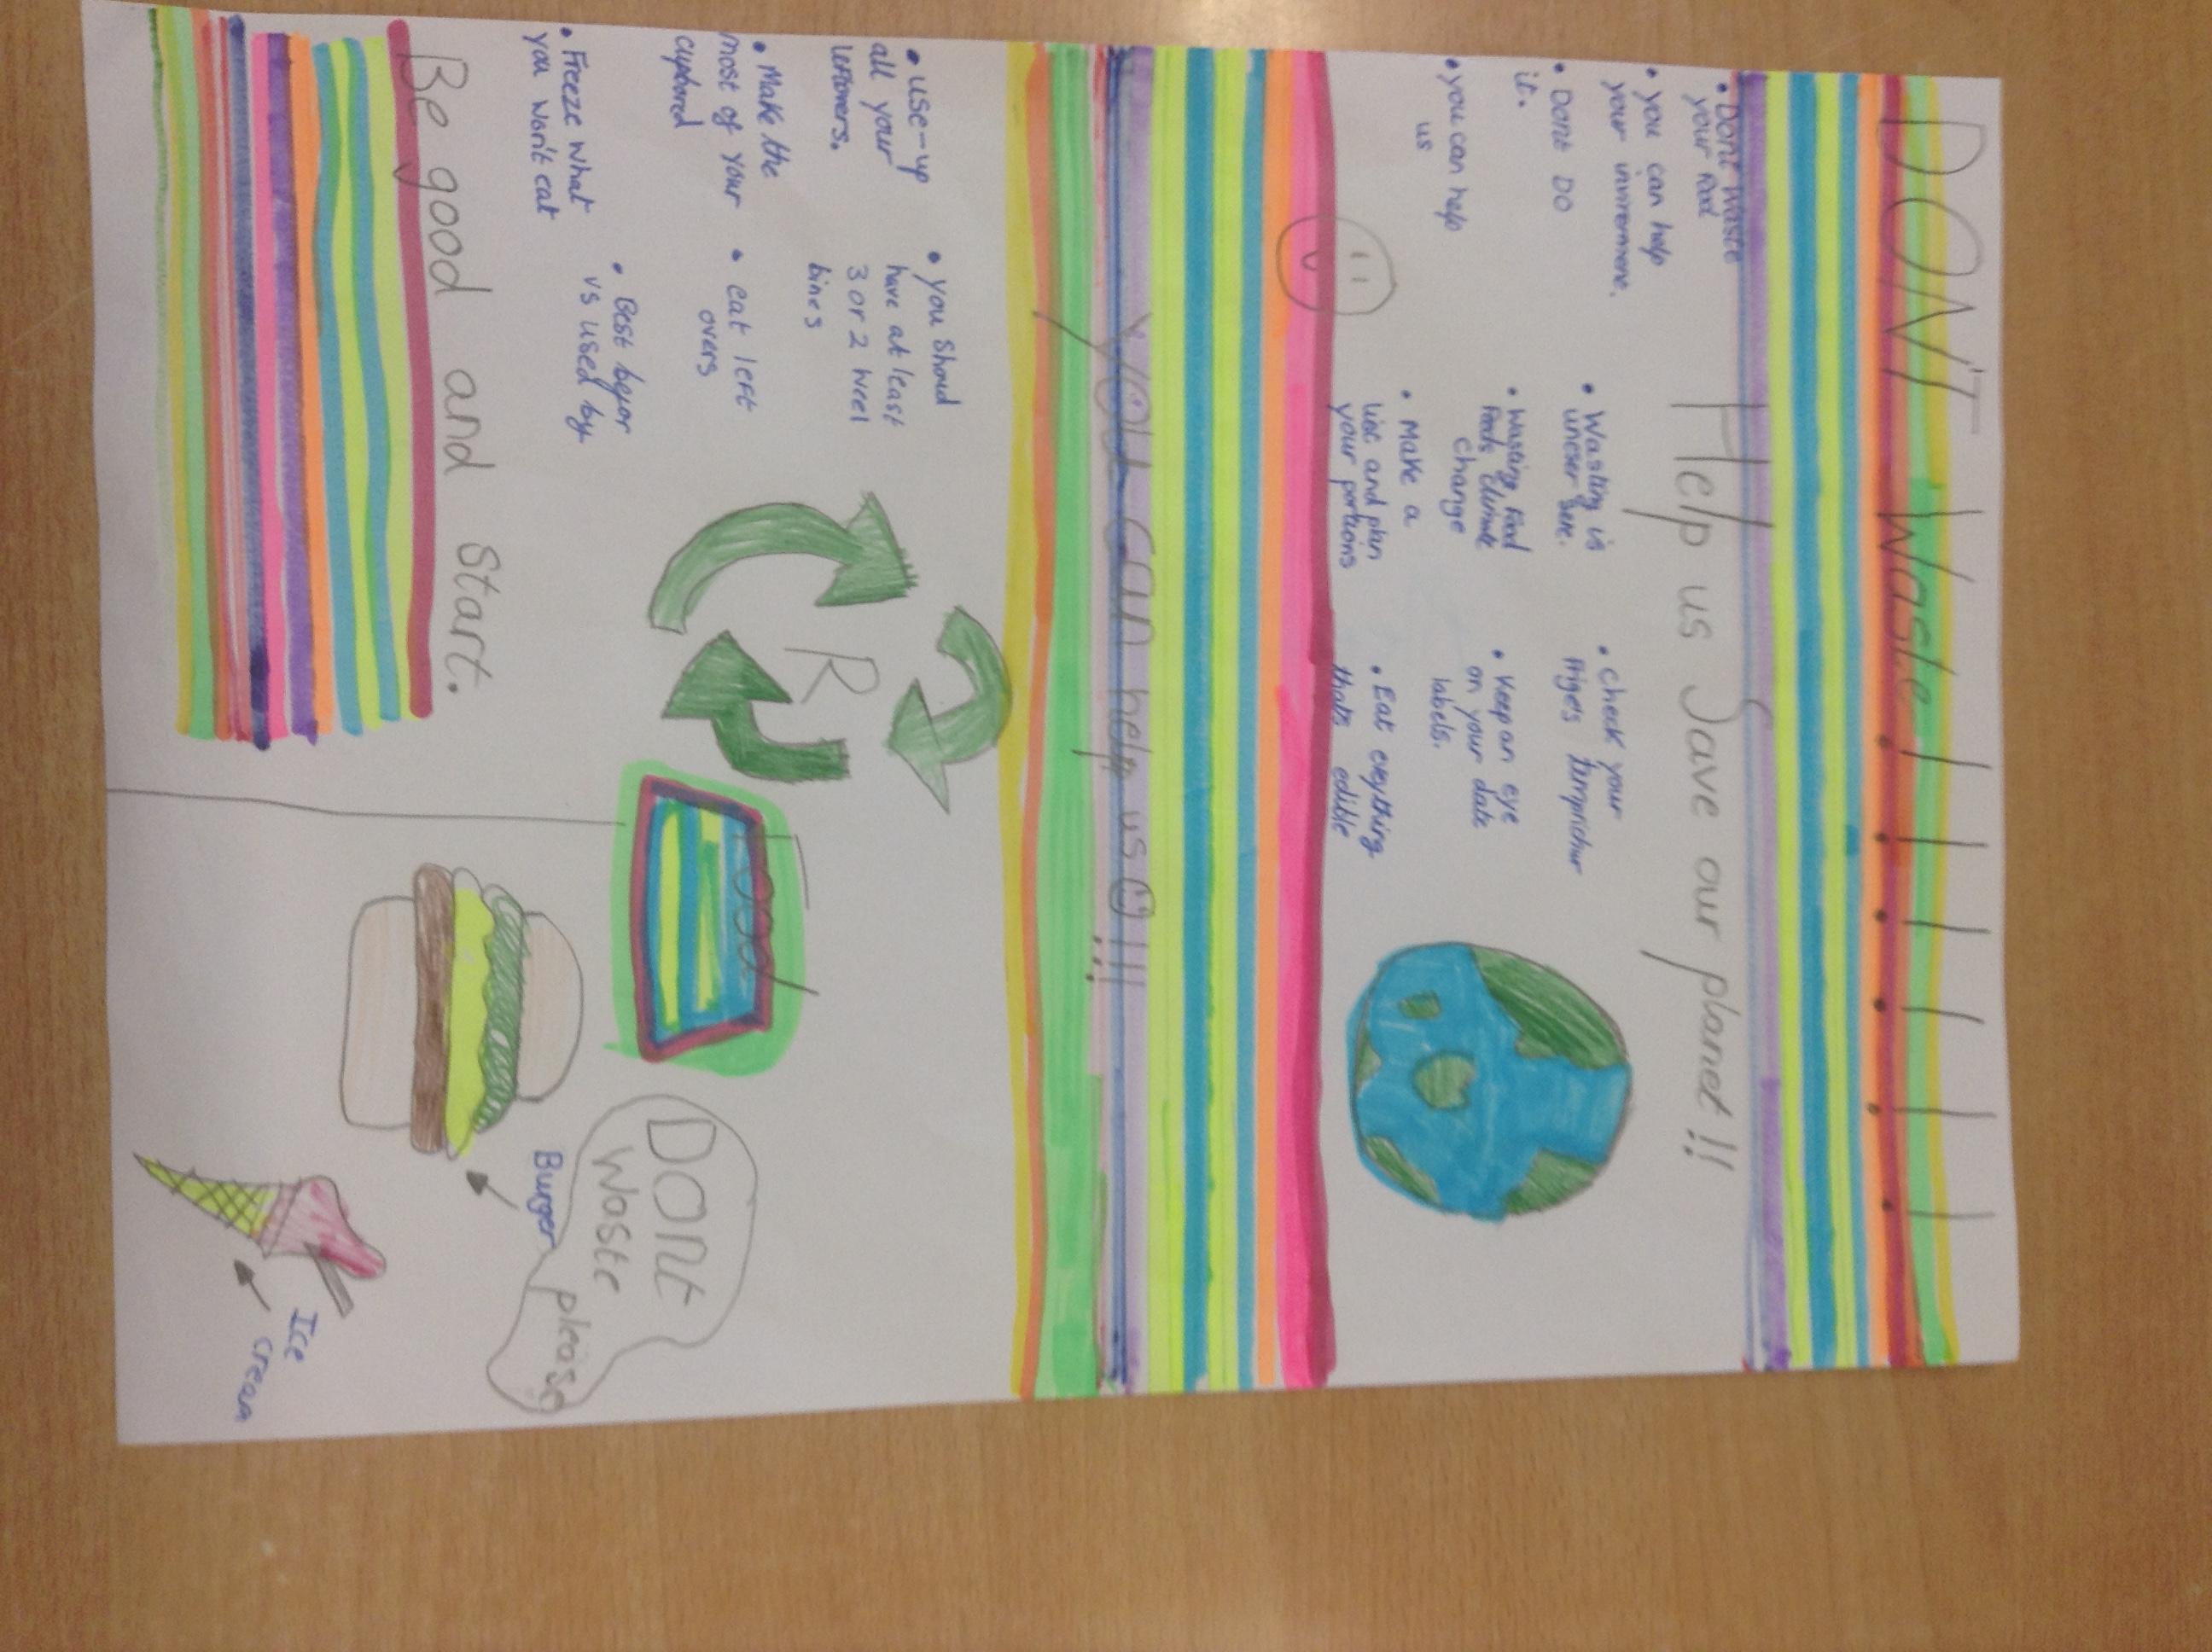 DONT Waste!!!!!!
Help us Save our planet!!
• Dont waste
your Food
• you can help
your invirermene.
• Dont DO
it.
• you can help
us
• Wasting is
uneser sare.
• Wasting Food
Feeds climate
change
• Make a
list and plan
your portions
• check your
friges temprichur
• Keep an eye
on your date
labels.
• Eat eveything
thats edible
you can help us !!!
• use-up
all your
lefovers.
• Make the
most of your
cupbored
• Freeze what
you won't eat
• you Shoud
have at least
3 or 2 weel
bines
• eat left
overs
• Best befor
vs used by
R
Be good and start.
Food
DONt
Waste
please
Burger
Ice
cream